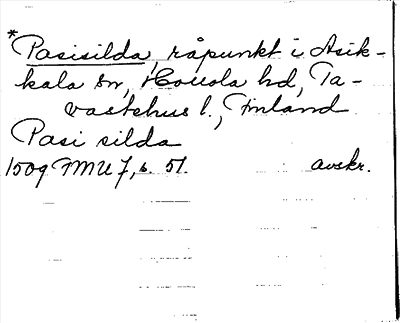 *Pasisilda, råpunkt i Asik-
kala sn, Hollola hd, Ta-
vastehus l., Finland
Pasi silda
1509 FMU 7, s. 51. avskr.